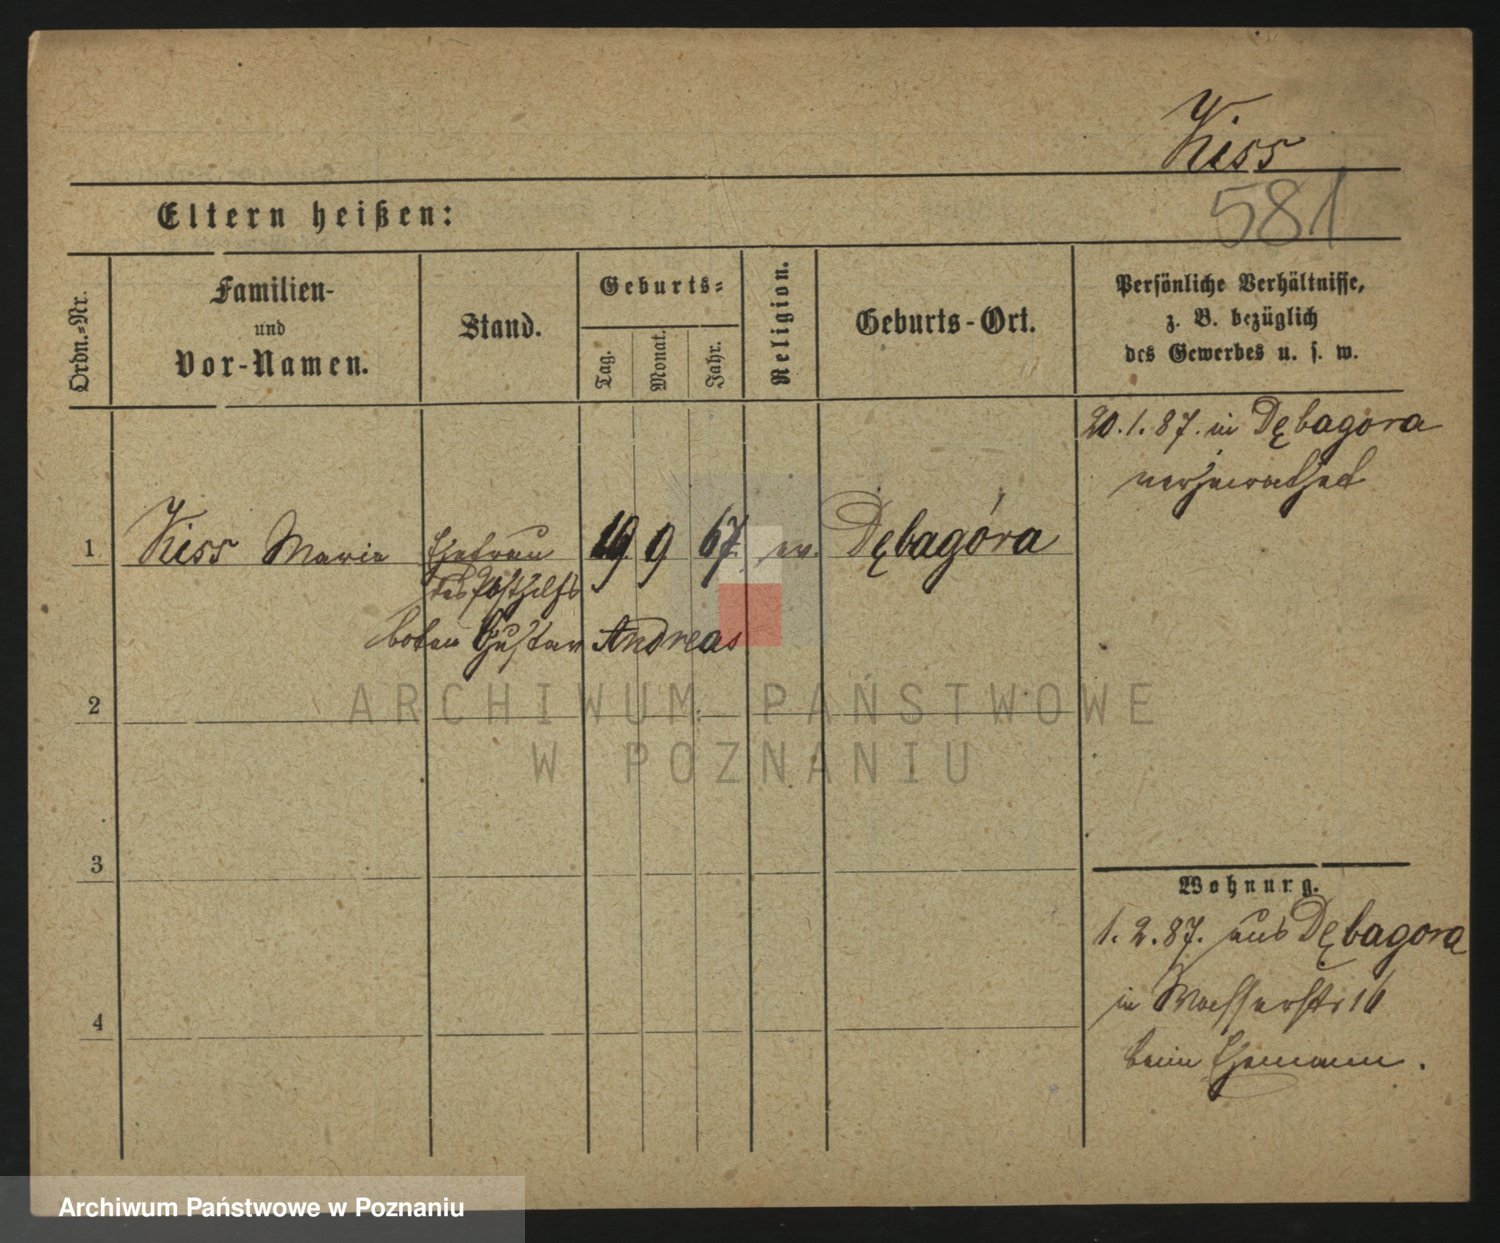 Kiss
581
Eltern heißen:
Ordn.-Nr.
Familien-
und
Vor-Namen.
Stand.
Geburts-
Tag.
Monat.
Jahr.
Religion.
Geburts-Ort.
Persönliche Verhältnisse,
z. B. bezüglich
des Gewerbes u. s. w.
20.1.87. in Dębagora
verheirathet
1 Kiss Marie Ehefrau 19 9 67. ev. Dębagóra
des Posthilfs
boten Gustav Andreas
2
3
4
Wohnung.
1.2.87. aus Dębagora
in Wasserstr 16
beim Ehemann.
ARCHIWUM PAŃSTWOWE
W POZNANIU
Archiwum Państwowe w Poznaniu